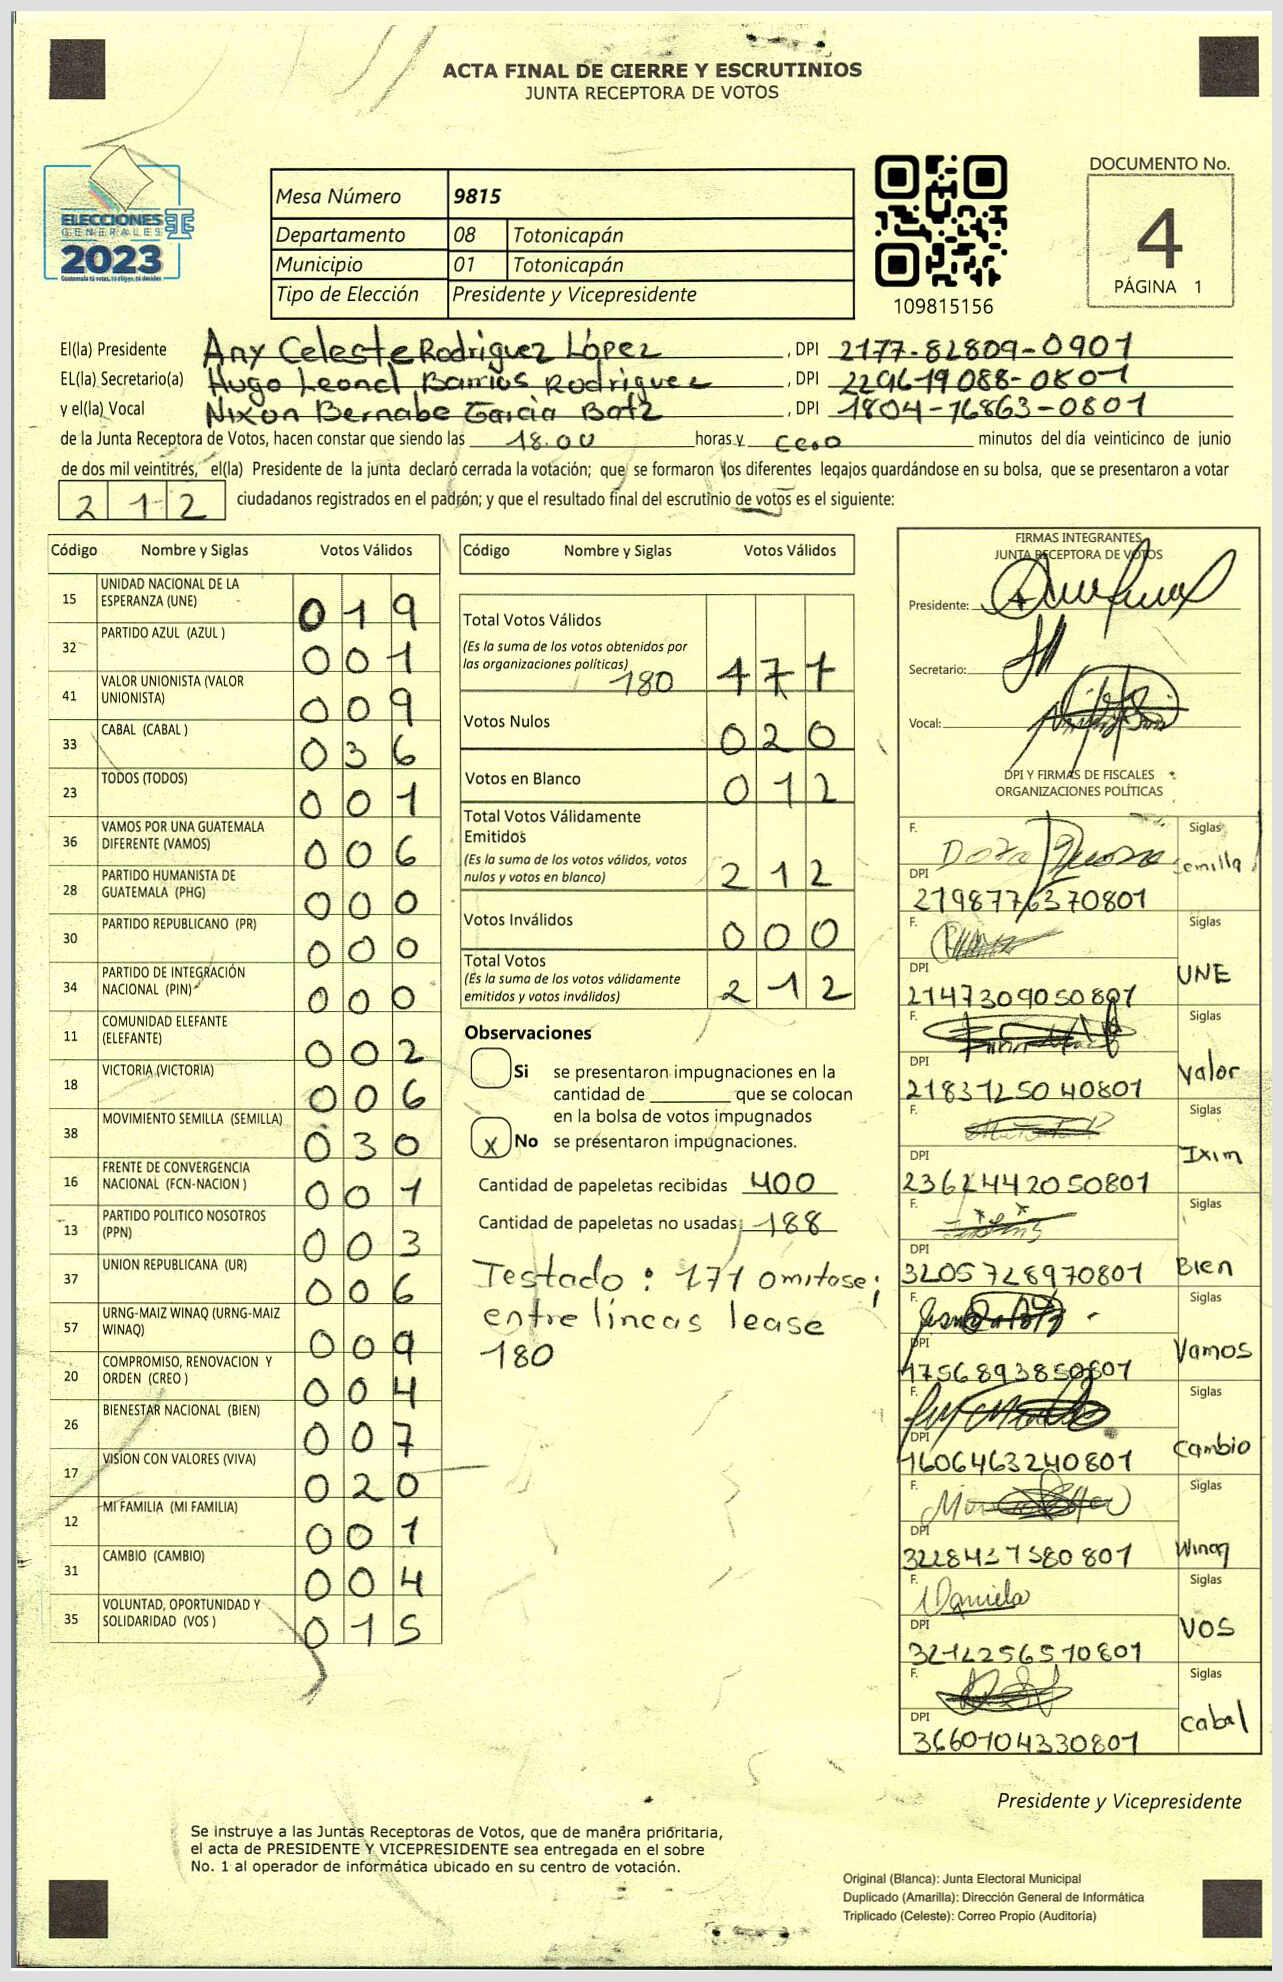 ACTA FINAL DE CIERRE Y ESCRUTINIOS
JUNTA RECEPTORA DE VOTOS
ELECCIONES
GENERALES
2023
Mesa Número 9815
Departamento 08 Totonicapán
Municipio 01 Totonicapán
Tipo de Elección Presidente y Vicepresidente
109815156
DOCUMENTO No.
4
PÁGINA 1
El(la) Presidente Any Celeste Rodriguez López , DPI 2177-82809-0901
EL(la) Secretario(a) Hugo Leonel Barrios Rodriguez , DPI 229619088-0801
y el(la) Vocal Nixon Bernabe Garcia Batz , DPI 1804-76863-0801
de la Junta Receptora de Votos, hacen constar que siendo las 18.00 horas y cero minutos del día veinticinco de junio
de dos mil veintitrés, el(la) Presidente de la junta declaró cerrada la votación; que se formaron los diferentes legajos quardándose en su bolsa, que se presentaron a votar
212 ciudadanos registrados en el padrón; y que el resultado final del escrutinio de votos es el siguiente:
Código Nombre y Siglas Votos Válidos
15 UNIDAD NACIONAL DE LA ESPERANZA (UNE) 019
32 PARTIDO AZUL (AZUL ) 001
41 VALOR UNIONISTA (VALOR UNIONISTA) 009
33 CABAL (CABAL ) 036
23 TODOS (TODOS) 001
36 VAMOS POR UNA GUATEMALA DIFERENTE (VAMOS) 006
28 PARTIDO HUMANISTA DE GUATEMALA (PHG) 000
30 PARTIDO REPUBLICANO (PR) 000
34 PARTIDO DE INTEGRACIÓN NACIONAL (PIN) 000
11 COMUNIDAD ELEFANTE (ELEFANTE) 002
18 VICTORIA (VICTORIA) 006
38 MOVIMIENTO SEMILLA (SEMILLA) 030
16 FRENTE DE CONVERGENCIA NACIONAL (FCN-NACION ) 001
13 PARTIDO POLITICO NOSOTROS (PPN) 003
37 UNION REPUBLICANA (UR) 006
57 URNG-MAIZ WINAQ (URNG-MAIZ WINAQ) 009
20 COMPROMISO, RENOVACION Y ORDEN (CREO ) 004
26 BIENESTAR NACIONAL (BIEN) 007
17 VISION CON VALORES (VIVA) 020
12 MI FAMILIA (MI FAMILIA) 001
31 CAMBIO (CAMBIO) 004
35 VOLUNTAD, OPORTUNIDAD Y SOLIDARIDAD (VOS ) 015
Código Nombre y Siglas Votos Válidos
Total Votos Válidos
(Es la suma de los votos obtenidos por
las organizaciones políticas)
180 171
Votos Nulos 020
Votos en Blanco 012
Total Votos Válidamente
Emitidos
(Es la suma de los votos válidos, votos
nulos y votos en blanco) 212
Votos Inválidos 000
Total Votos
(Es la suma de los votos válidamente
emitidos y votos inválidos) 212
Observaciones
Si se presentaron impugnaciones en la
cantidad de ________ que se colocan
en la bolsa de votos impugnados
X No se presentaron impugnaciones.
Cantidad de papeletas recibidas 400
Cantidad de papeletas no usadas 188
Testado : 171 omitase;
entre líneas lease
180
FIRMAS INTEGRANTES
JUNTA RECEPTORA DE VOTOS
Presidente:
Secretario:
Vocal:
DPI Y FIRMAS DE FISCALES
ORGANIZACIONES POLÍTICAS
F. Siglas
Semilla
DPI
2198776370801
F. Siglas
UNE
DPI
2147309050801
F. Siglas
Valor
DPI
2183725040801
F. Siglas
Ixim
DPI
2362442050801
F. Siglas
Bien
DPI
3205728970801
F. Siglas
Vamos
DPI
1756893850801
F. Siglas
Cambio
DPI
1606463240801
F. Siglas
Winaq
DPI
3228437380801
F. Daniela Siglas
VOS
DPI
3212256510801
F. Siglas
Cabal
DPI
3660104330801
Presidente y Vicepresidente
Se instruye a las Juntas Receptoras de Votos, que de manera prioritaria,
el acta de PRESIDENTE Y VICEPRESIDENTE sea entregada en el sobre
No. 1 al operador de informática ubicado en su centro de votación.
Original (Blanca): Junta Electoral Municipal
Duplicado (Amarilla): Dirección General de Informática
Triplicado (Celeste): Correo Propio (Auditoría)